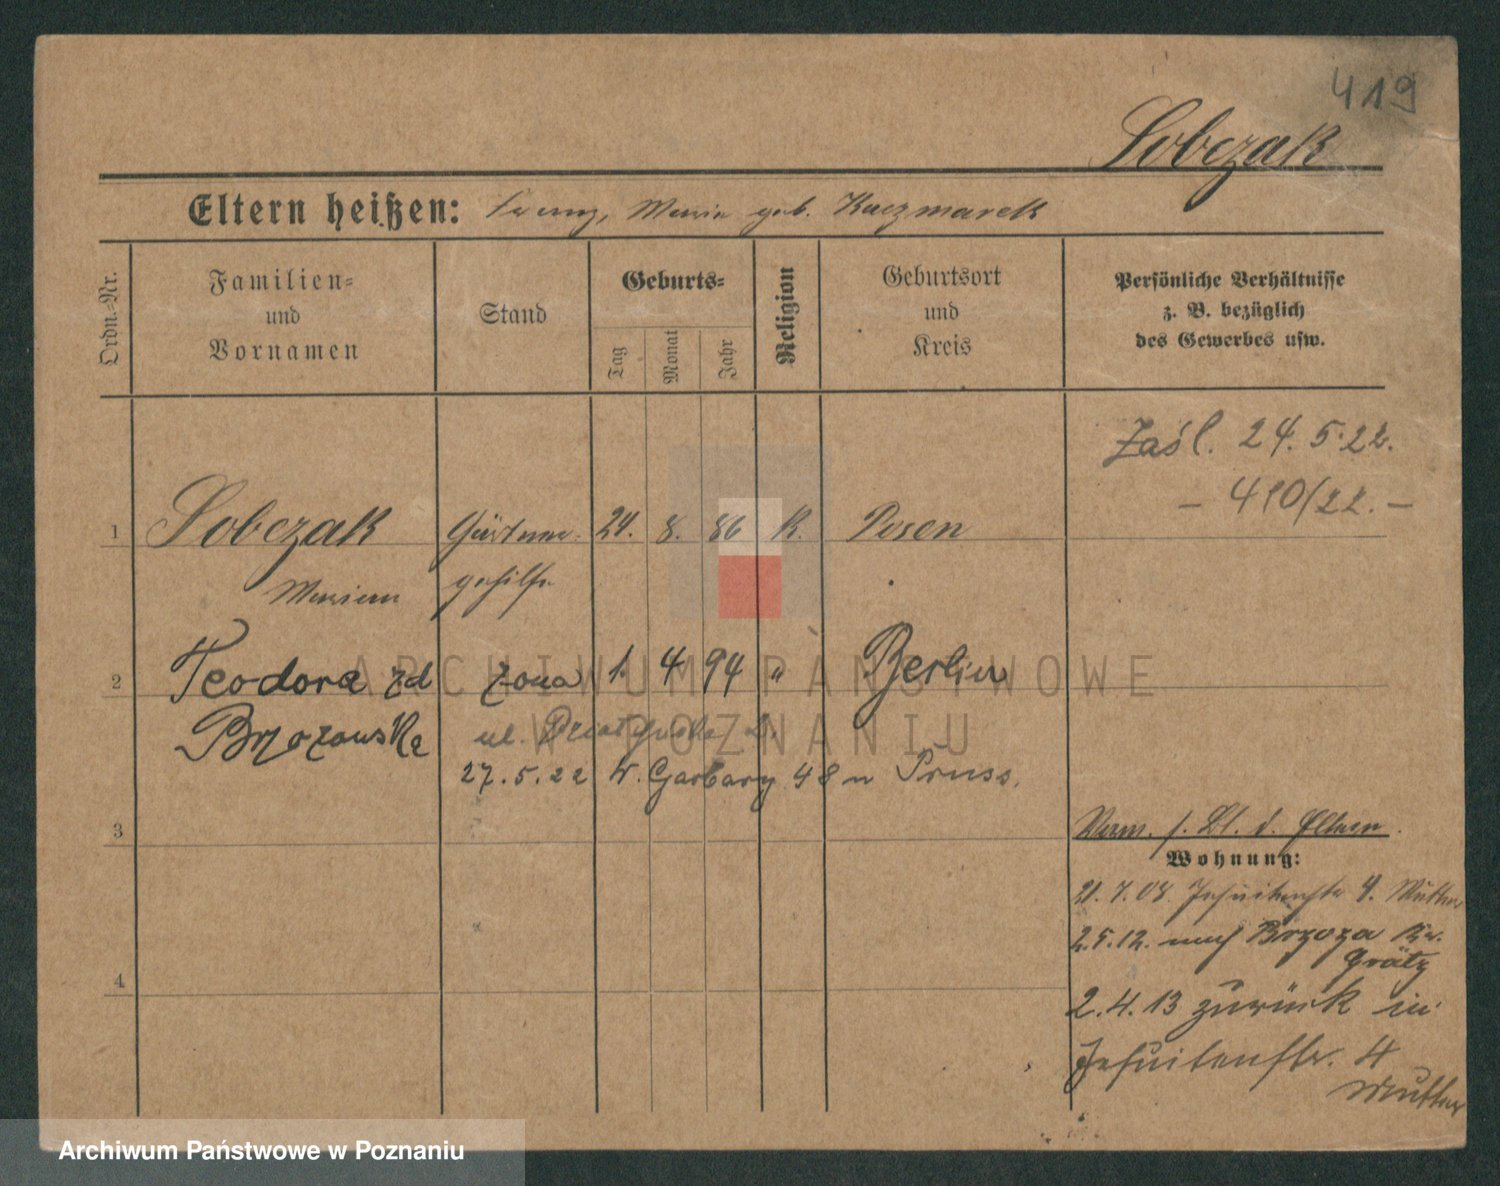 419
Sobczak
Eltern heißen: Franz, Maria geb. Kaczmarek
Ordn.-Nr.
Familien-
und
Vornamen
Stand
Geburts-
Tag
Monat
Jahr
Religion
Geburtsort
und
Kreis
Persönliche Verhältnisse
z. B. bezüglich
des Gewerbes usw.
Zaśl. 24.5.22.
- 410/22. -
1 Sobczak Gärtner- 24. 8. 86 K. Posen
Marian gehilfe
2 Teodora zd żona 1. 4 94 " Berlin
Brzozowska ul.
27.5.22 W. Garbary 48 u Pruss.
3
4
Verm. s. Bl. d. Eltern.
Wohnung:
21.7.08 Jesuitenstr 4. Mutter
2.5.12. nach Brzoza Kr.
Grätz
2.4.13 zurück in
Jesuitenstr. 4
Mutter
ARCHIWUM PAŃSTWOWE
W POZNANIU
Archiwum Państwowe w Poznaniu